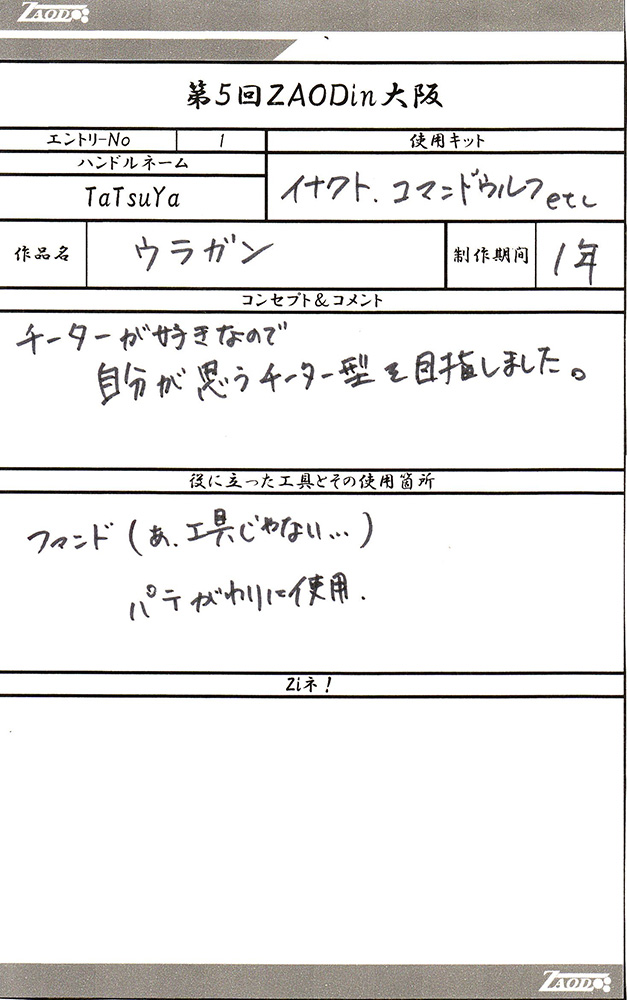 ZAOD
第5回ZAODin大阪
エントリーNo 1 使用キット
ハンドルネーム
TaTsuYa イナクト、コマンドウルフetc
作品名 ウラガン 制作期間 1年
コンセプト＆コメント
チーターが好きなので
自分が思うチーター型を目指しました。
役に立った工具とその使用箇所
フマンド(あ、工具じゃない…)
パテがわりに使用.
Ziネ！
ZAOD